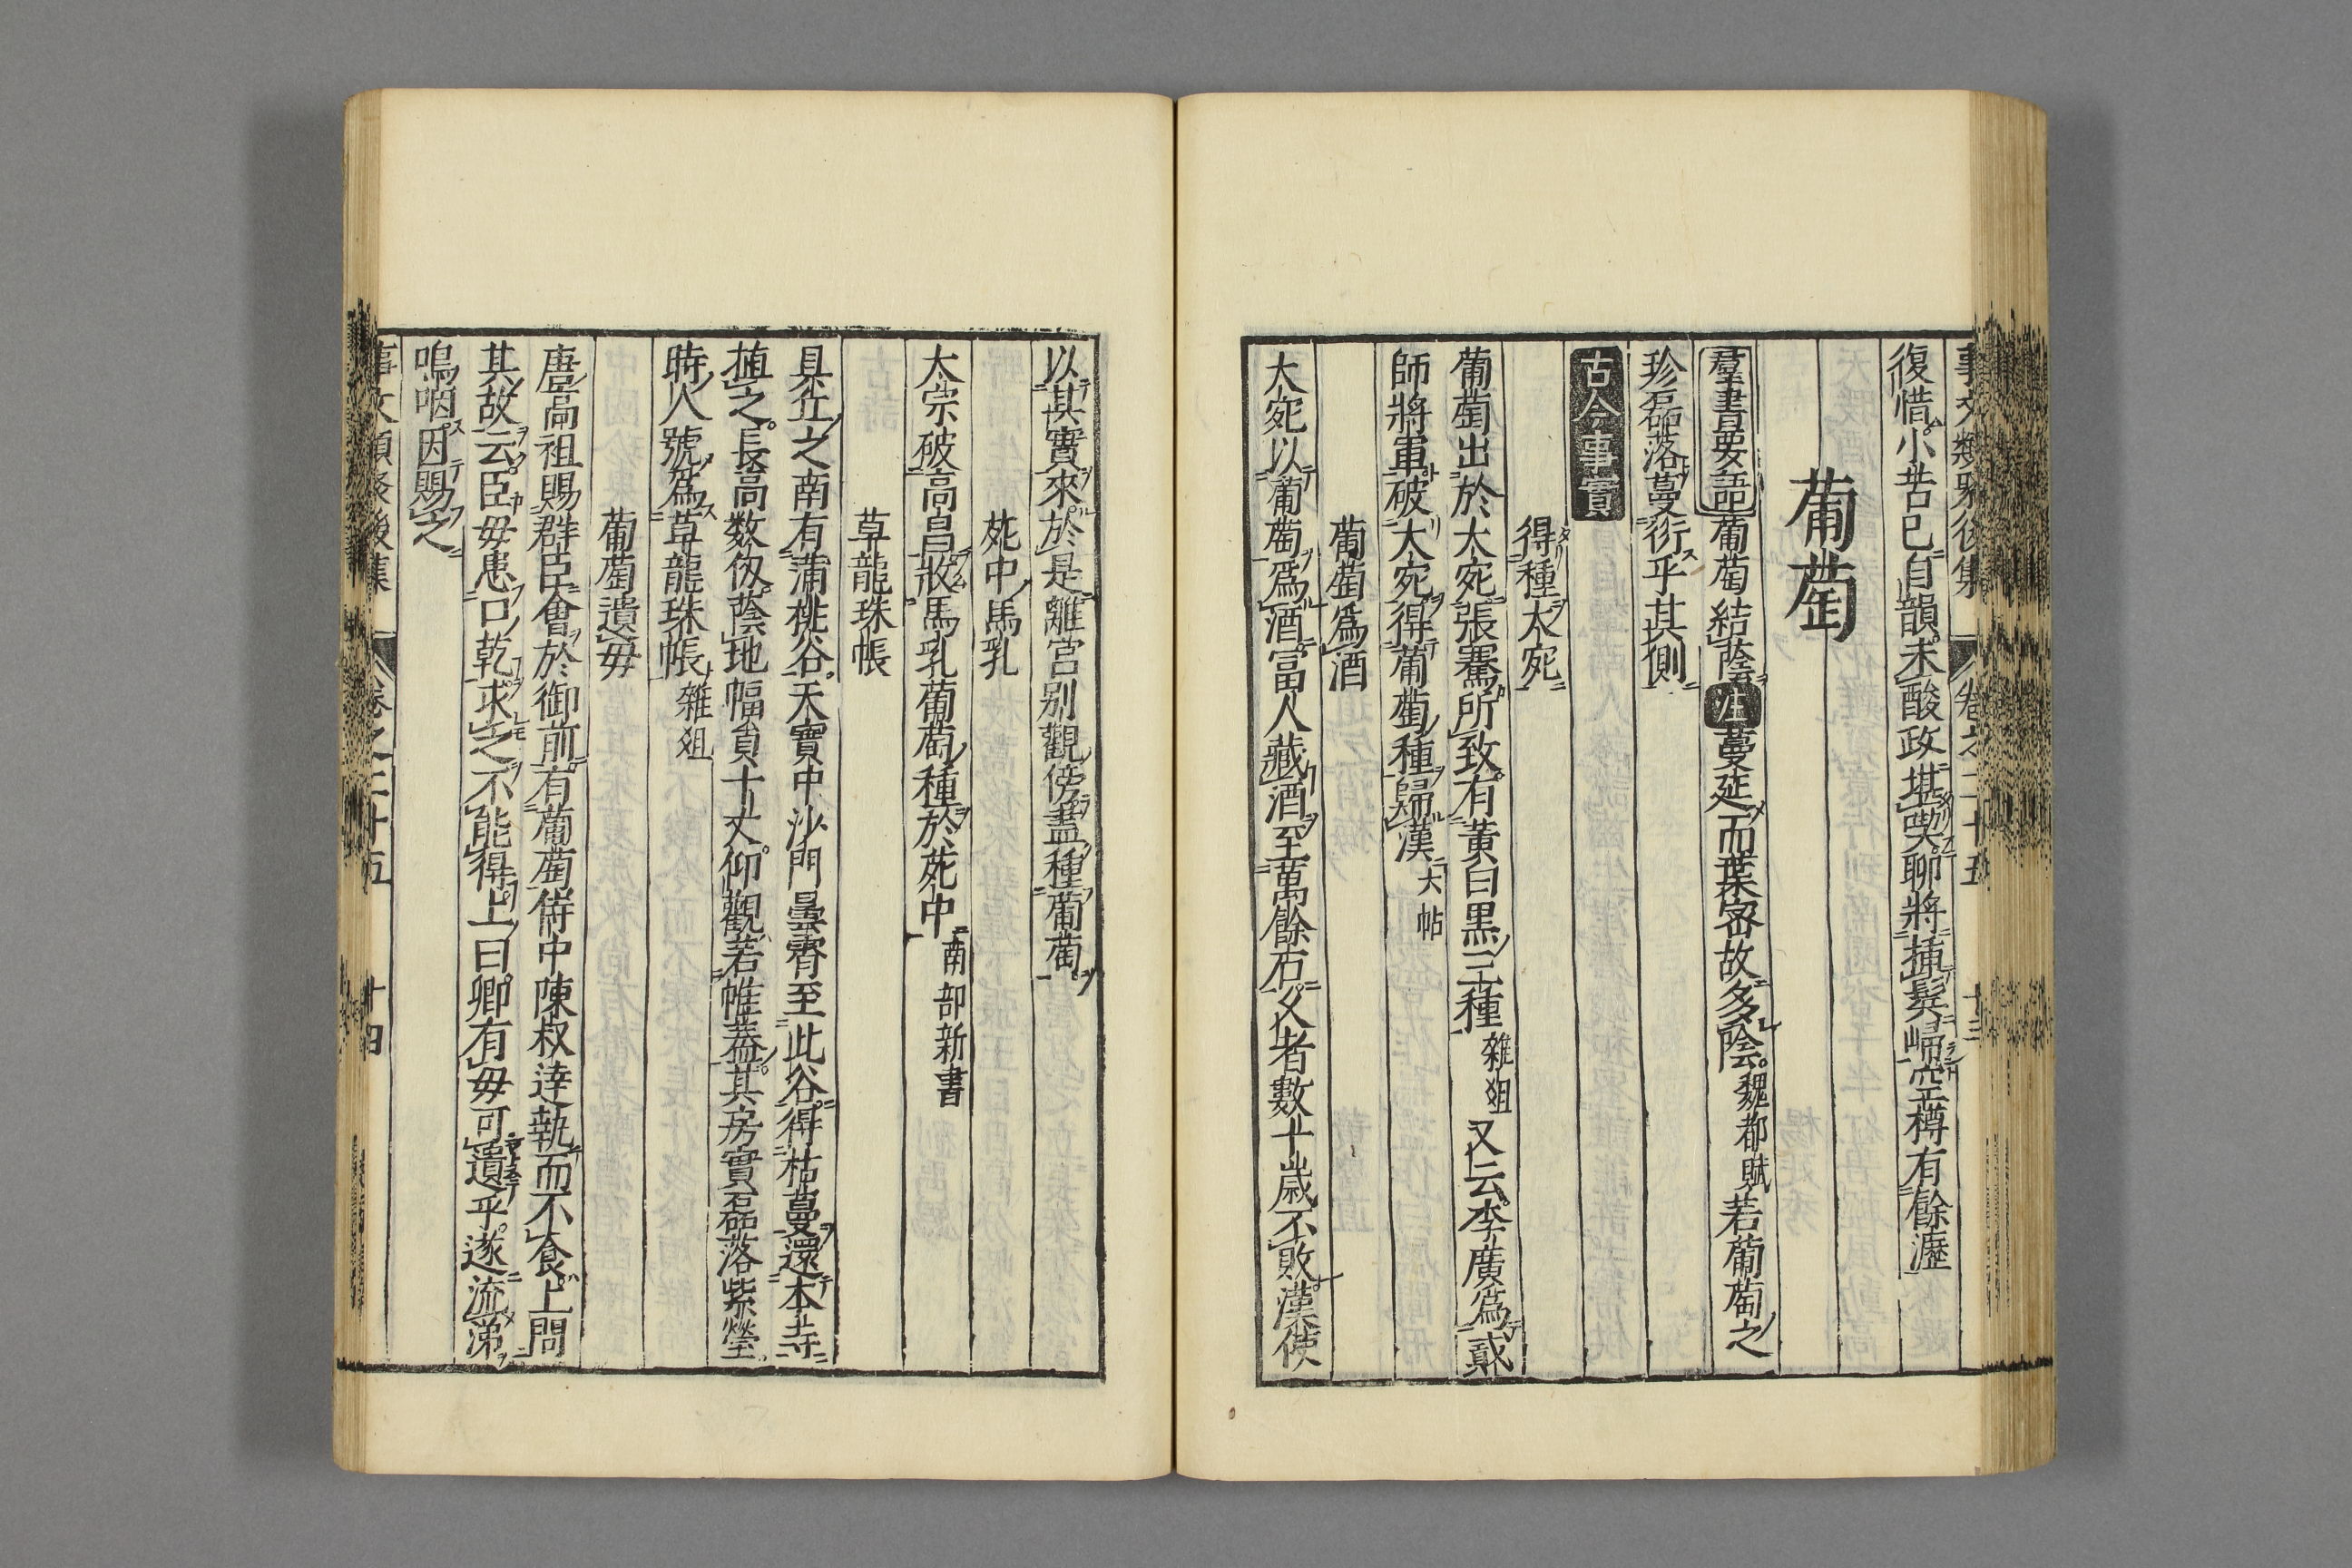 事文類聚後集 卷之二十五 十三
復惜小苦已自韻未酸政堪㗖聊將揷鬂歸空樽有餘瀝
葡萄
羣書要語葡萄結陰注蔓延而葉密故多陰魏都賦若葡萄之
珍磊落蔓衍乎其側
古今事實
得種大宛
葡萄出於大宛張騫所致有黃白黑三種雜俎又云李廣爲貳
師將軍破大宛得葡萄種歸漢六帖
葡萄爲酒
大宛以葡萄爲酒富人藏酒至萬餘石久者數十歲不敗漢使
以其實來於是離宮別觀傍盡種葡萄
苑中馬乳
太宗破高昌收馬乳葡萄種於苑中南部新書
草龍珠帳
具丘之南有蒲桃谷天寶中沙門曇霄至此谷得枯蔓還本寺
植之長高数仭蔭地幅負十丈仰觀若帷蓋其房實磊落紫瑩
時人號爲草龍珠帳雜俎
葡萄遺毋
唐高祖賜群臣會於御前有葡萄侍中陳叔達執而不食上問
其故云臣毋患口乾求之不能得上曰卿有毋可遺乎遂流涕
嗚咽因賜之
事文類聚後集 卷之二十五 十四